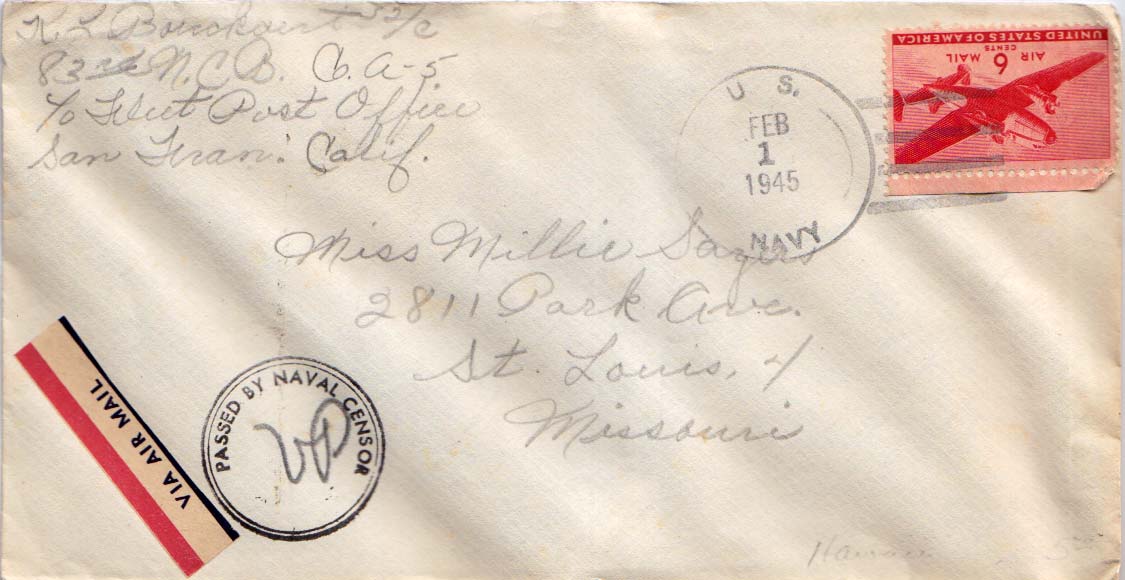 83rd N.C.B. Co. A-5
c/o Fleet Post Office
San Fran. Calif.
UNITED STATES OF AMERICA
6
CENTS
AIR MAIL
U. S.
FEB
1
1945
NAVY
Miss Millie Sayers
2811 Park Ave.
St. Louis, 4
Missouri
VIA AIR MAIL
PASSED BY NAVAL CENSOR
VP